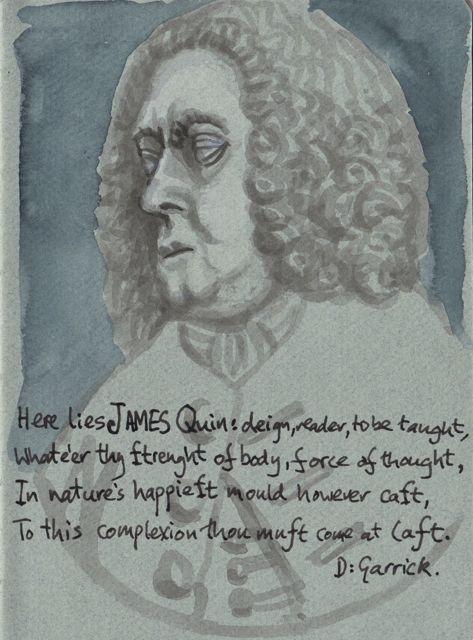 Here lies JAMES Quin: deign, reader, to be taught,
Whate'er thy ftrenght of body, force of thought,
In nature's happieft mould however caft,
To this complexion thou muft come at laft.
D: Garrick.